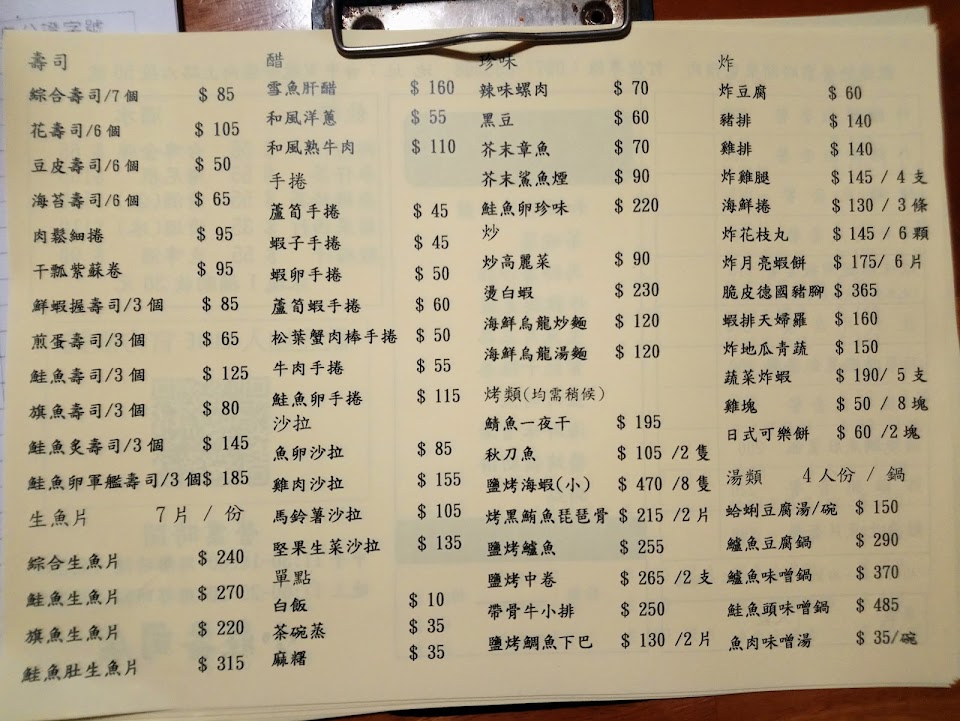 壽司
綜合壽司/7個 $ 85
花壽司/6個 $ 105
豆皮壽司/6個 $ 50
海苔壽司/6個 $ 65
肉鬆細捲 $ 95
干瓢紫蘇卷 $ 95
鮮蝦握壽司/3個 $ 85
煎蛋壽司/3個 $ 65
鮭魚壽司/3個 $ 125
旗魚壽司/3個 $ 80
鮭魚炙壽司/3個 $ 145
鮭魚卵軍艦壽司/3個 $ 185
生魚片 7片 / 份
綜合生魚片 $ 240
鮭魚生魚片 $ 270
旗魚生魚片 $ 220
鮭魚肚生魚片 $ 315
醋
雪魚肝醋 $ 160
和風洋蔥 $ 55
和風熟牛肉 $ 110
手捲
蘆筍手捲 $ 45
蝦子手捲 $ 45
蝦卵手捲 $ 50
蘆筍蝦手捲 $ 60
松葉蟹肉棒手捲 $ 50
牛肉手捲 $ 55
鮭魚卵手捲 $ 115
沙拉
魚卵沙拉 $ 85
雞肉沙拉 $ 155
馬鈴薯沙拉 $ 105
堅果生菜沙拉 $ 135
單點
白飯 $ 10
茶碗蒸 $ 35
麻糬 $ 35
珍味
辣味螺肉 $ 70
黑豆 $ 60
芥末章魚 $ 70
芥末鯊魚煙 $ 90
鮭魚卵珍味 $ 220
炒
炒高麗菜 $ 90
燙白蝦 $ 230
海鮮烏龍炒麵 $ 120
海鮮烏龍湯麵 $ 120
烤類(均需稍候)
鯖魚一夜干 $ 195
秋刀魚 $ 105 /2隻
鹽烤海蝦(小) $ 470 /8隻
烤黑鮪魚琵琶骨 $ 215 /2片
鹽烤鱸魚 $ 255
鹽烤中卷 $ 265 /2支
帶骨牛小排 $ 250
鹽烤鯛魚下巴 $ 130 /2片
炸
炸豆腐 $ 60
豬排 $ 140
雞排 $ 140
炸雞腿 $ 145 / 4支
海鮮捲 $ 130 / 3條
炸花枝丸 $ 145 / 6顆
炸月亮蝦餅 $ 175/ 6片
脆皮德國豬腳 $ 365
蝦排天婦羅 $ 160
炸地瓜青蔬 $ 150
蔬菜炸蝦 $ 190/ 5支
雞塊 $ 50 / 8塊
日式可樂餅 $ 60 /2塊
湯類 4人份 / 鍋
蛤蜊豆腐湯/碗 $ 150
鱸魚豆腐鍋 $ 290
鱸魚味噌鍋 $ 370
鮭魚頭味噌鍋 $ 485
魚肉味噌湯 $ 35/碗